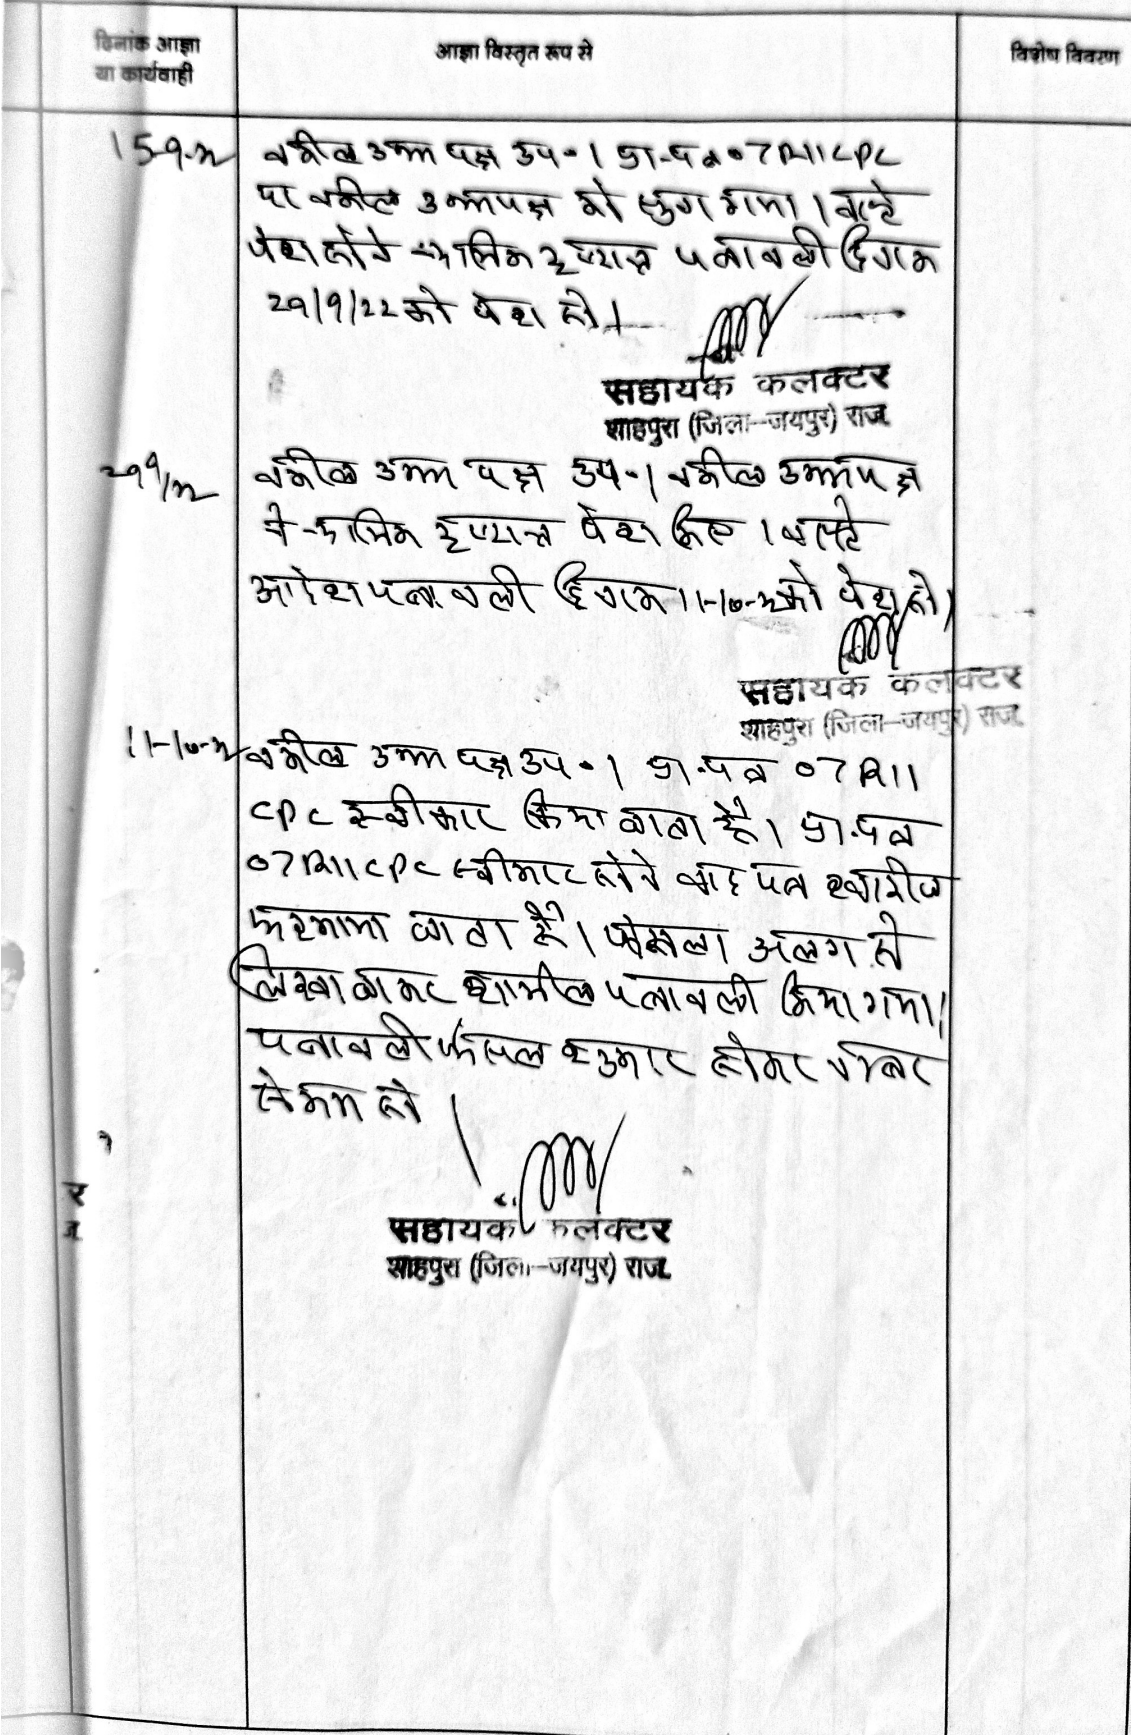 दिनांक आज्ञा
या कार्यवाही
आज्ञा विस्तृत रूप से
विशेष विवरण
15-9-22
वकील उभय पक्ष उप०। प्रा.पत्र 07R11CPC
पर वकील उभयपक्ष को सुना गया। वास्ते
पेश होने न्यायिक दृष्टान्त पत्रावली दिनांक
29/9/22 को पेश हो।
सहायक कलक्टर
शाहपुरा (जिला-जयपुर) राज.
29/9/22
वकील उभय पक्ष उप०। वकील उभयपक्ष
ने न्यायिक दृष्टान्त पेश किए। वास्ते
आदेश पत्रावली दिनांक 11-10-22 को पेश हो।
सहायक कलक्टर
शाहपुरा (जिला-जयपुर) राज.
11-10-22
वकील उभय पक्ष उप०। प्रा.पत्र 07R11
CPC स्वीकार किया जाता है। प्रा.पत्र
07R11CPC स्वीकार होने से वाद पत्र खारीज
फरमाया जाता है। फैसला अलग से
लिखा जाकर शामील पत्रावली किया गया।
पत्रावली फैसल शुमार होकर नम्बर
से कम हो।
सहायक कलक्टर
शाहपुरा (जिला-जयपुर) राज.